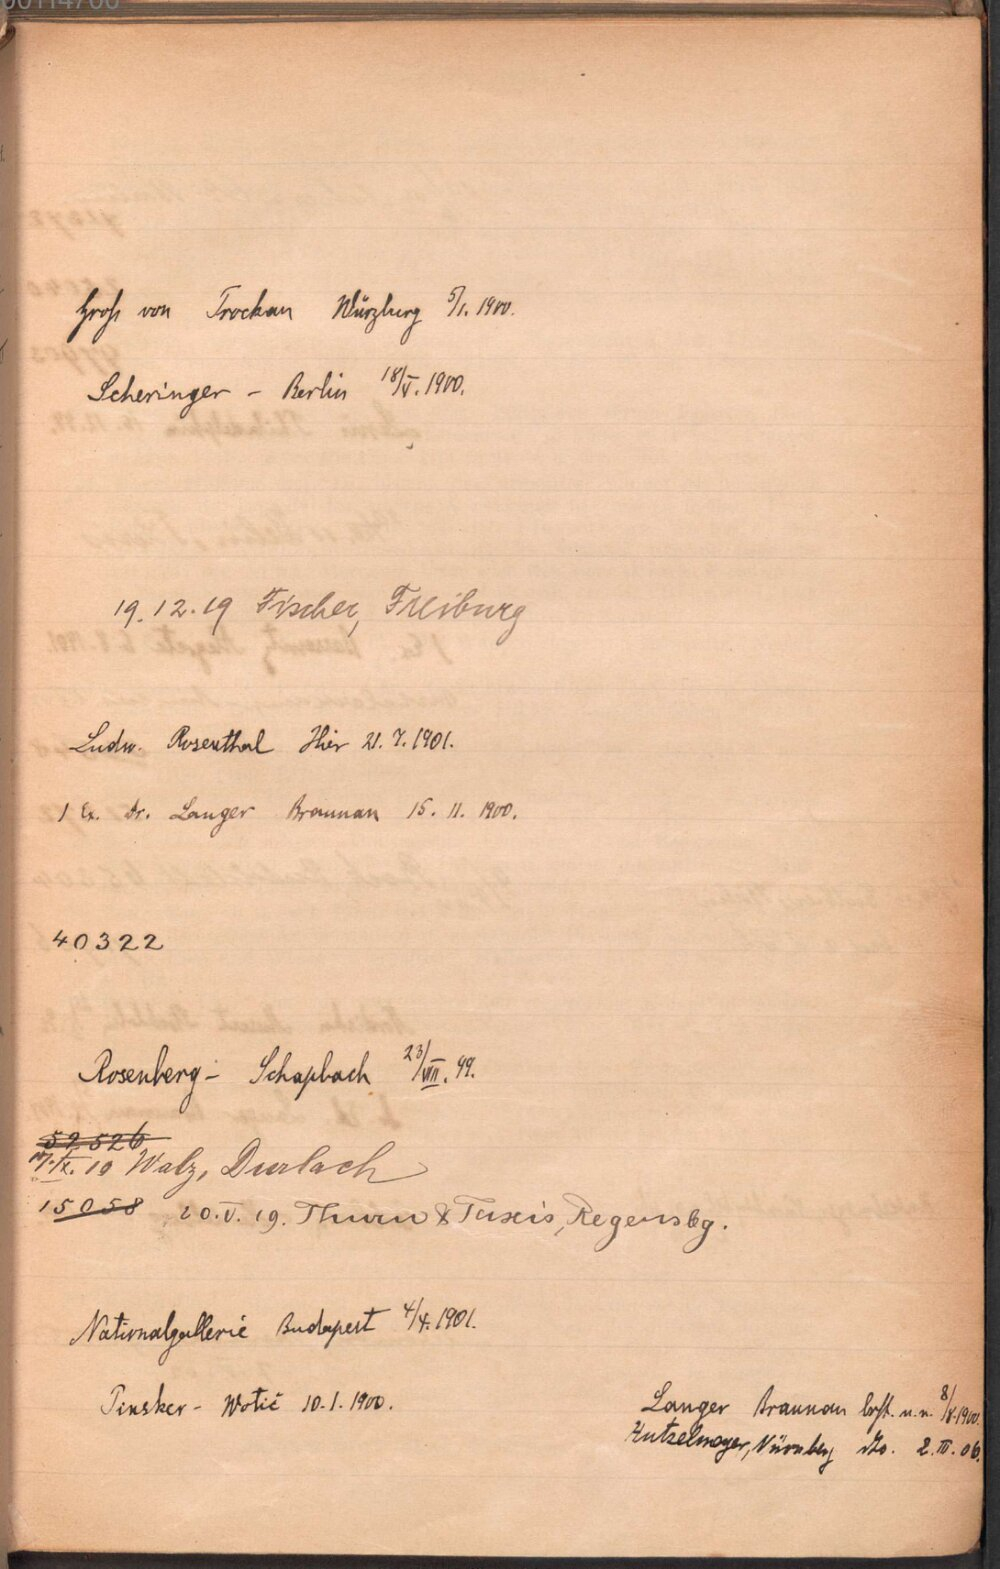 00114700
Groß von Trockau Würzburg 5/1. 1900.
Scheringer - Berlin 18/V. 1900.
19.12.19 Fischer, Freiburg
Ludw. Rosenthal Hier 21.7.1901.
1 Ex. Dr. Langer Braunau 15. 11. 1900.
40322
Rosenberg - Schapbach 23/VIII. 99.
52526
17.IX.10 Walz, Durlach
15058 20.V.19. Thurn & Taxis, Regensbg.
Nationalgallerie Budapest 4/4.1901.
Pinsker - Wotič 10.1.1900.
Langer Braunau best. n.n. 8/8.1900.
Hutzelmeyer, Nürnberg dto. 2.III.06.